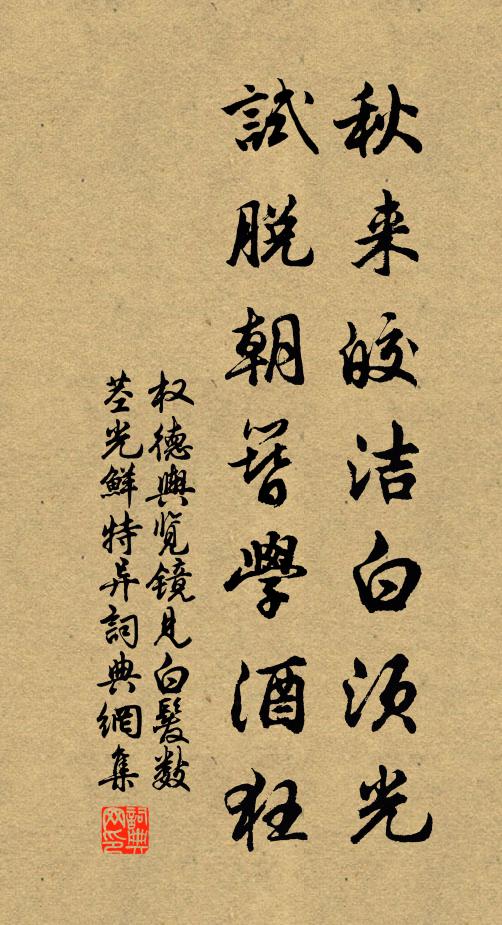 秋来皎洁白须光
試脱朝簪學酒狂
权德輿览镜見白髮数
茎光鮮特异詞典網集
詞典
网印